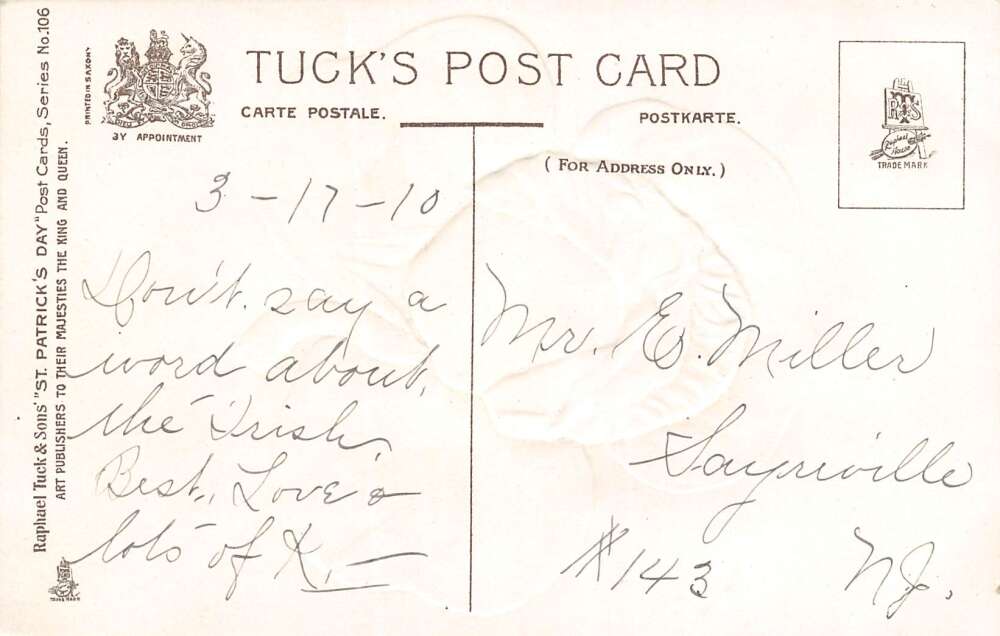 TUCK'S POST CARD
CARTE POSTALE.
POSTKARTE.
(FOR ADDRESS ONLY.)
PRINTED IN SAXONY
BY APPOINTMENT
R T S
Raphael House
TRADE MARK
Raphael Tuck & Sons' "ST. PATRICK'S DAY" Post Cards, Series No. 106
ART PUBLISHERS TO THEIR MAJESTIES THE KING AND QUEEN.
TRADE MARK
3-17-10
Don't. say a
word about,
the Irish,
Best., Love &
lots of K,—
Mr. E. Miller
Sayreville
#143 NJ.